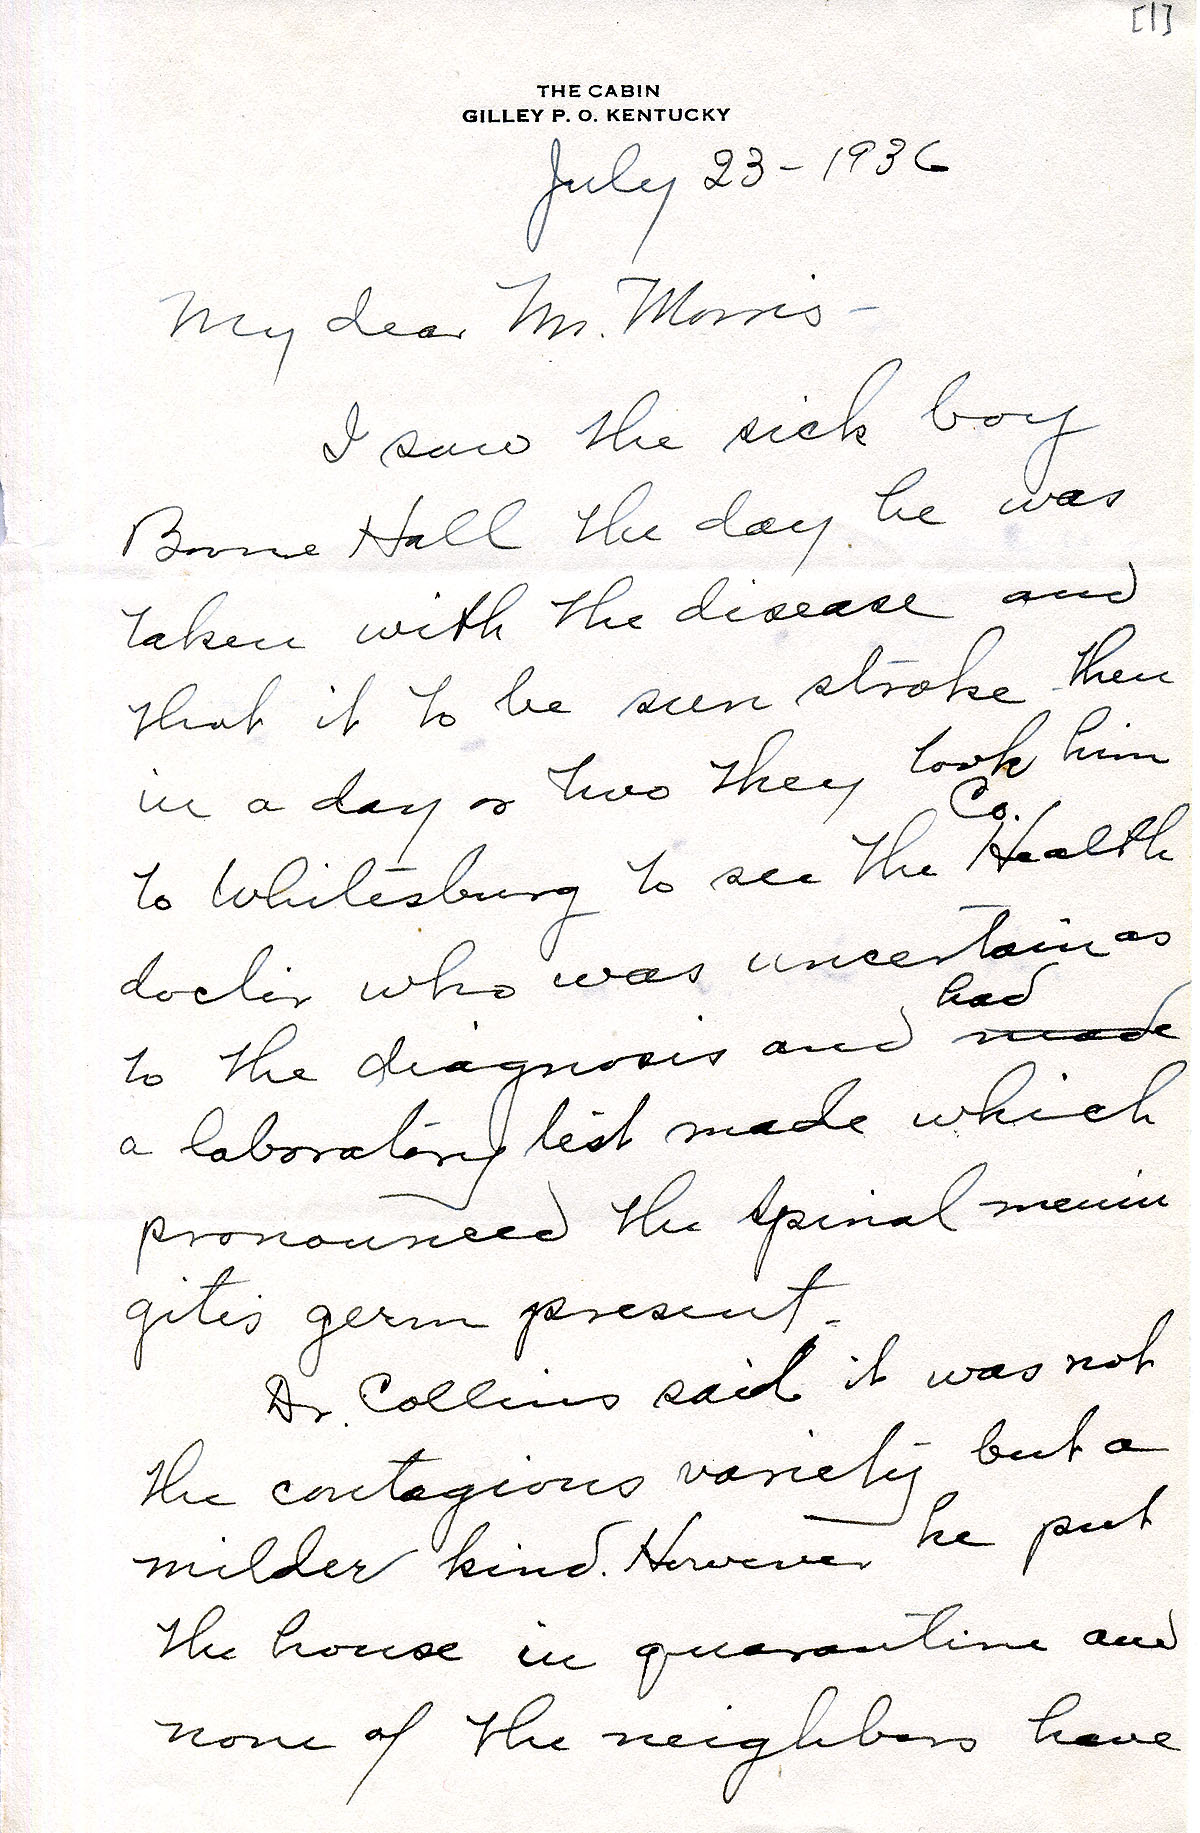 [1]
THE CABIN
GILLEY P. O. KENTUCKY
July 23 - 1936
My dear Mr. Morris -
I saw the sick boy
Boone Hall the day he was
taken with the disease and
thot it to be sun stroke then
in a day or two they took him
to Whitesburg to see the Co. Health
doctor who was uncertain as
to the diagnosis and had made
a laboratory test made which
pronounced the spinal menin
gitis germ present.
Dr. Collins said it was not
the contagious variety but a
milder kind. However he put
the house in quarantine and
none of the neighbors have